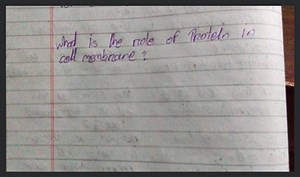 What is the role of Protein in
cell membrane?